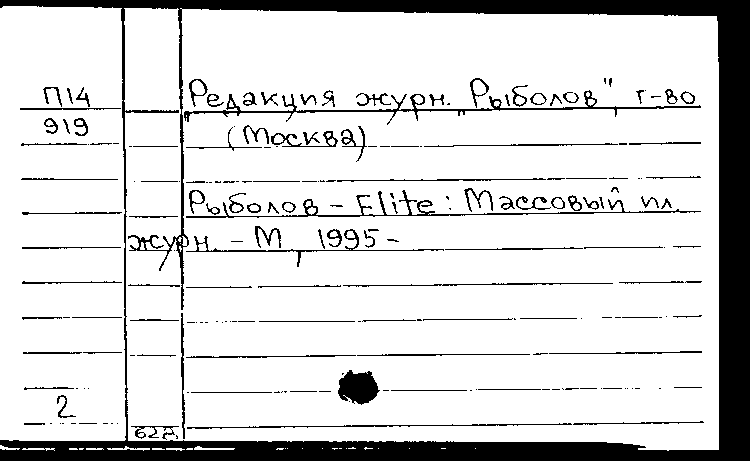 П14
919
"Редакция журн. „Рыболов", т-во
(Москва)
Рыболов - Elite : Массовый ил.
журн. - М, 1995 -
2